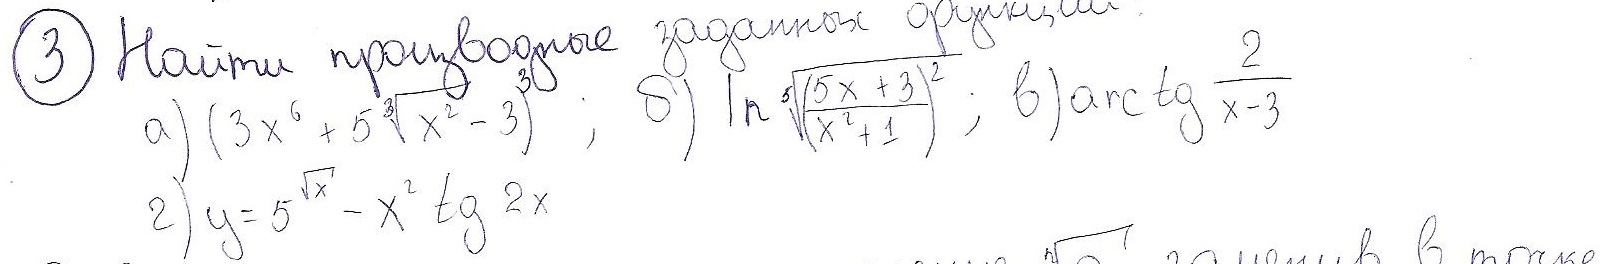 ③ Найти производные заданных функций.
а) (3x⁶ + 5∛x² - 3)³ ; б) ln ⁵√((5x + 3)/(x² + 1))² ; в) arctg 2/(x-3)
г) y = 5^√x - x² tg 2x
заменив в точке